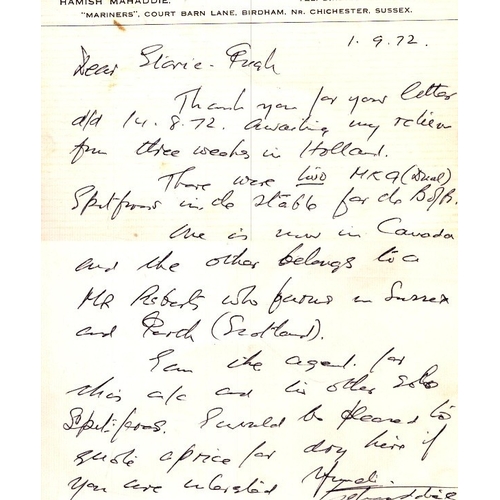 HAMISH MAHADDIE,
"MARINERS", COURT BARN LANE, BIRDHAM, NR. CHICHESTER, SUSSEX.
1.9.72.
Dear Storie-Pugh
Thank you for your letter
d/d 14.8.72. awaiting my return
from three weeks in Holland.
There were two MK 9 (Dual)
Spitfires in the stable for the B of B.
One is now in Canada
and the other belongs to a
MR Roberts who farms in Sussex
and Perth (Scotland).
I am the agent for
this a/c and his other solo
Spitfires. I would be pleased to
quote a price for dry hire if
you are interested